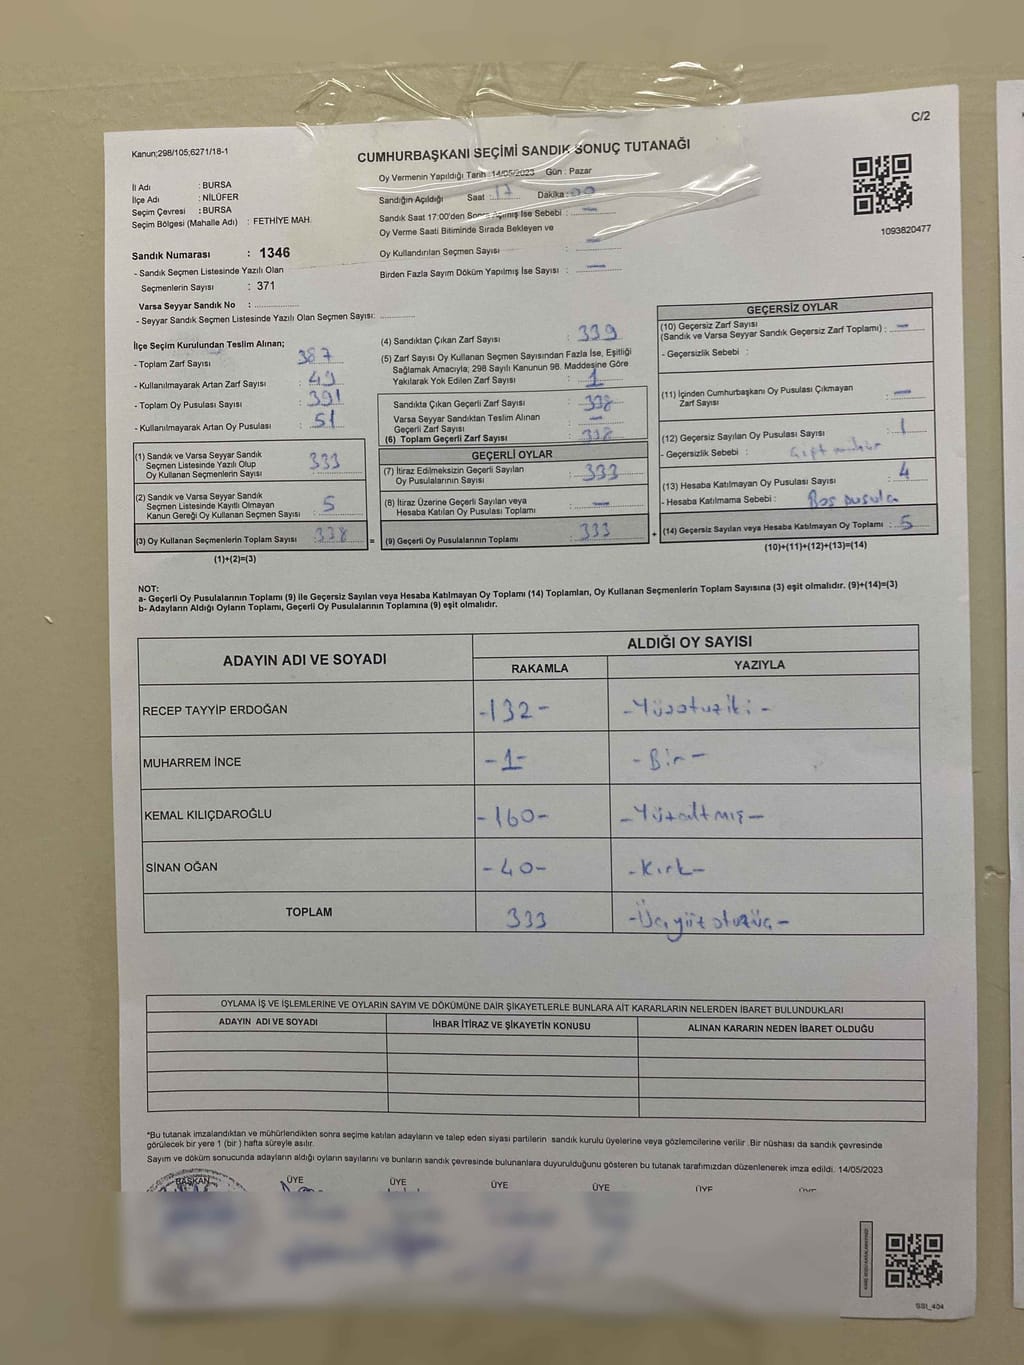 C/2
Kanun;298/105;6271/18-1
CUMHURBAŞKANI SEÇİMİ SANDIK SONUÇ TUTANAĞI
Oy Vermenin Yapıldığı Tarih :14/05/2023 Gün : Pazar
İl Adı : BURSA
İlçe Adı : NİLÜFER
Seçim Çevresi : BURSA
Seçim Bölgesi (Mahalle Adı) : FETHİYE MAH.
Sandığın Açıldığı Saat : 17 Dakika : 00
Sandık Saat 17:00'den Sonra Açılmış İse Sebebi : —
Oy Verme Saati Bitiminde Sırada Bekleyen ve
Oy Kullandırılan Seçmen Sayısı : —
Birden Fazla Sayım Döküm Yapılmış İse Sayısı : —
1093820477
Sandık Numarası : 1346
- Sandık Seçmen Listesinde Yazılı Olan
Seçmenlerin Sayısı : 371
Varsa Seyyar Sandık No :
- Seyyar Sandık Seçmen Listesinde Yazılı Olan Seçmen Sayısı:
İlçe Seçim Kurulundan Teslim Alınan;
- Toplam Zarf Sayısı : 387
- Kullanılmayarak Artan Zarf Sayısı : 49
- Toplam Oy Pusulası Sayısı : 391
- Kullanılmayarak Artan Oy Pusulası : 51
(1) Sandık ve Varsa Seyyar Sandık
Seçmen Listesinde Yazılı Olup
Oy Kullanan Seçmenlerin Sayısı : 333
(2) Sandık ve Varsa Seyyar Sandık
Seçmen Listesinde Kayıtlı Olmayan
Kanun Gereği Oy Kullanan Seçmen Sayısı : 5
(3) Oy Kullanan Seçmenlerin Toplam Sayısı : 338
(1)+(2)=(3)
(4) Sandıktan Çıkan Zarf Sayısı : 339
(5) Zarf Sayısı Oy Kullanan Seçmen Sayısından Fazla İse, Eşitliği
Sağlamak Amacıyla; 298 Sayılı Kanunun 98. Maddesine Göre
Yakılarak Yok Edilen Zarf Sayısı : 1
Sandıkta Çıkan Geçerli Zarf Sayısı : 338
Varsa Seyyar Sandıktan Teslim Alınan
Geçerli Zarf Sayısı : —
(6) Toplam Geçerli Zarf Sayısı : 338
GEÇERLİ OYLAR
(7) İtiraz Edilmeksizin Geçerli Sayılan
Oy Pusulalarının Sayısı : 333
(8) İtiraz Üzerine Geçerli Sayılan veya
Hesaba Katılan Oy Pusulası Toplamı : —
= (9) Geçerli Oy Pusulalarının Toplamı : 333
GEÇERSİZ OYLAR
(10) Geçersiz Zarf Sayısı
(Sandık ve Varsa Seyyar Sandık Geçersiz Zarf Toplamı) : —
- Geçersizlik Sebebi :
(11) İçinden Cumhurbaşkanı Oy Pusulası Çıkmayan
Zarf Sayısı : —
(12) Geçersiz Sayılan Oy Pusulası Sayısı : 1
- Geçersizlik Sebebi : Çift mühür
(13) Hesaba Katılmayan Oy Pusulası Sayısı : 4
- Hesaba Katılmama Sebebi : Boş pusula
+ (14) Geçersiz Sayılan veya Hesaba Katılmayan Oy Toplamı : 5
(10)+(11)+(12)+(13)=(14)
NOT:
a- Geçerli Oy Pusulalarının Toplamı (9) ile Geçersiz Sayılan veya Hesaba Katılmayan Oy Toplamı (14) Toplamları, Oy Kullanan Seçmenlerin Toplam Sayısına (3) eşit olmalıdır. (9)+(14)=(3)
b- Adayların Aldığı Oyların Toplamı, Geçerli Oy Pusulalarının Toplamına (9) eşit olmalıdır.
ADAYIN ADI VE SOYADI ALDIĞI OY SAYISI
RAKAMLA YAZIYLA
RECEP TAYYİP ERDOĞAN -132- -Yüzotuziki-
MUHARREM İNCE -1- -Bir-
KEMAL KILIÇDAROĞLU -160- -Yüzaltmış-
SİNAN OĞAN -40- -Kırk-
TOPLAM 333 -Üçyüzotuzüç-
OYLAMA İŞ VE İŞLEMLERİNE VE OYLARIN SAYIM VE DÖKÜMÜNE DAİR ŞİKAYETLERLE BUNLARA AİT KARARLARIN NELERDEN İBARET BULUNDUKLARI
ADAYIN ADI VE SOYADI İHBAR İTİRAZ VE ŞİKAYETİN KONUSU ALINAN KARARIN NEDEN İBARET OLDUĞU
*Bu tutanak imzalandıktan ve mühürlendikten sonra seçime katılan adayların ve talep eden siyasi partilerin sandık kurulu üyelerine veya gözlemcilerine verilir .Bir nüshası da sandık çevresinde
görülecek bir yere 1 (bir ) hafta süreyle asılır.
Sayım ve döküm sonucunda adayların aldığı oyların sayılarını ve bunların sandık çevresinde bulunanlara duyurulduğunu gösteren bu tutanak tarafımızdan düzenlenerek imza edildi. 14/05/2023
BAŞKAN ÜYE ÜYE ÜYE ÜYE ÜYE
SS1_404